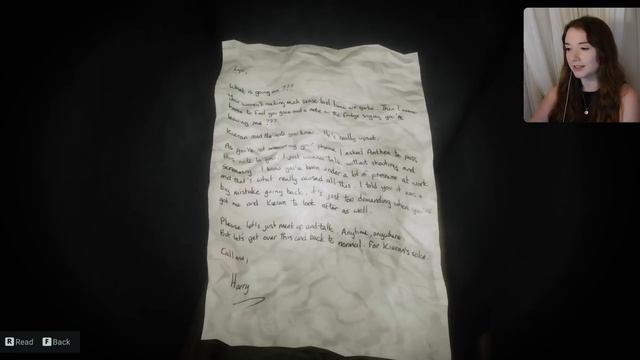 Lyn,
What is going on ???
You weren't making much sense last time we spoke. Then I come
home to find you gone and a note on the fridge saying you're
leaving me ???
Kieran read the note you know. He's really upset.
As you're not answering your phone I asked Anthea to pass
this note to you. I just wanna talk without shouting and
screaming. I know you've been under a lot of pressure at work
and that's what really caused all this. I told you it was a
big mistake going back, it's just too demanding when you've
got me and Kieran to look after as well.
Please let's just meet up and talk. Anytime, anywhere.
But let's get over this and back to normal. For Kieran's sake.
Call me,
Harry
R Read F Back